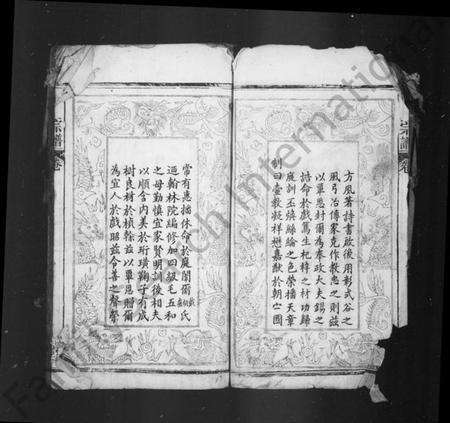 方夙著詩書啟後用彰式谷之
風弓冶傳家克作教忠之則茲
以覃恩封爾為奉政大夫錫之
誥命於戲篤生杞梓之材功歸
庭訓丕煥絲綸之色榮播天章
制曰壼教凝祥懋嘉猷於朝寧國
常有惠播休命於庭闈爾
氏
迺翰林院編修加四級毛五和
之母勤慎宜家賢明訓後相夫
以順含內美於珩璜鞠子有成
樹良材於楨幹茲以覃恩贈爾
為宜人於戲昭茲令善之聲榮
宗譜 卷
宗譜 卷